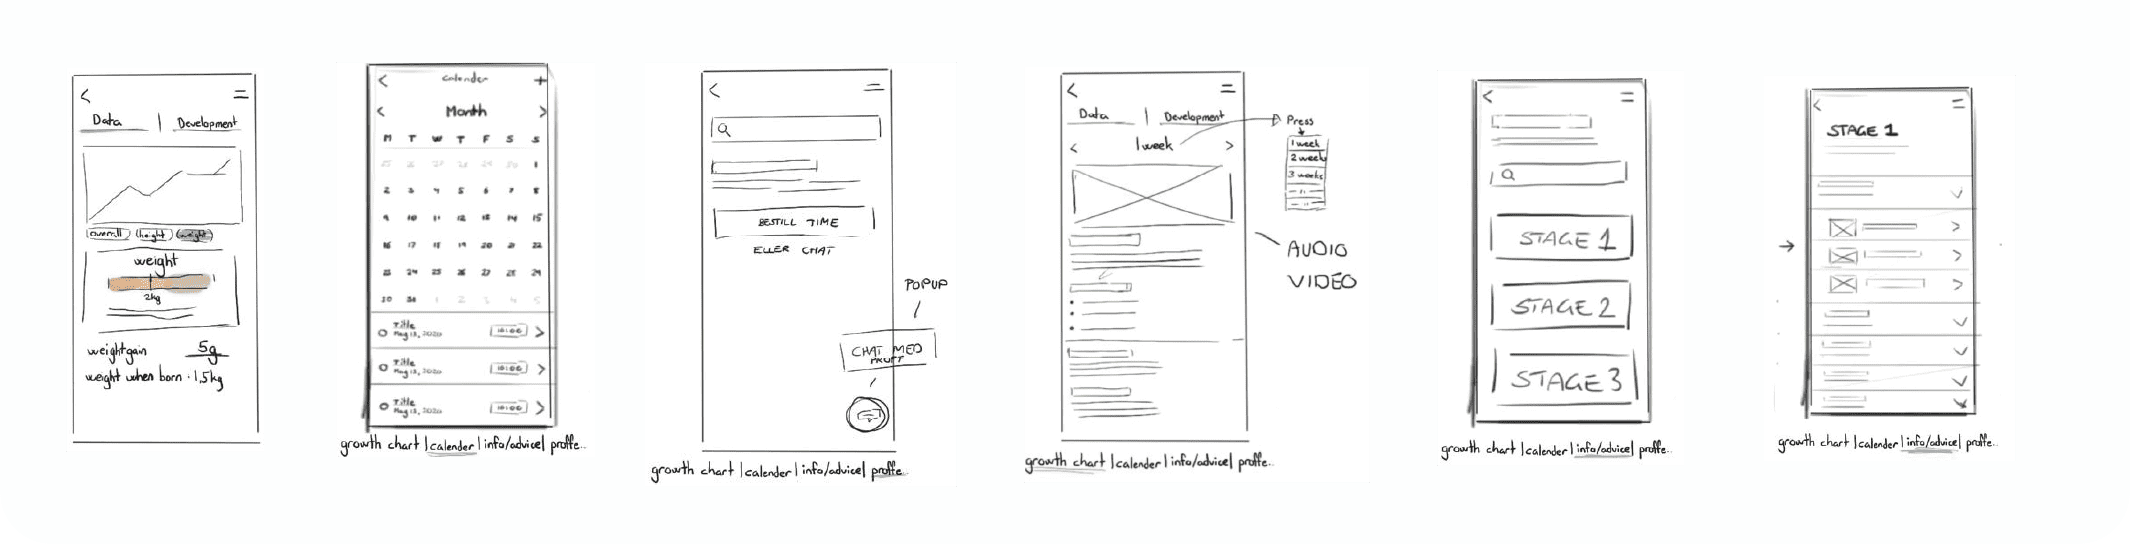 Data | Development
overall height weight
weight
2kg
weightgain 5g
weight when born : 1,5kg
Calender
Month
M T W T F S S
1
2 3 4 5 6 7 8
9 10 11 12 13 14 15
16 17 18 19 20 21 22
23 24 25 26 27 28 29
30
1 2 3 4 5
Title
May 13, 2020
10:00
Title
May 13, 2020
10:00
Title
May 13, 2020
10:00
growth chart | calender | info/advice | proffe..
BESTILL TIME
ELLER CHAT
POPUP
CHAT MED
growth chart | calender | info/advice | proffe..
Data | Development
1week
Press
1 week
2 week
3 weeks
AUDIO
VIDEO
growth chart | calender | info/advice | proffe..
STAGE 1
STAGE 2
STAGE 3
growth chart | calender | info/advice | proffe..
STAGE 1
growth chart | calender | info/advice | proffe..